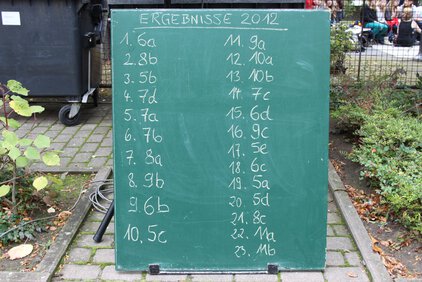 ERGEBNISSE 2012
1. 6a
2. 8b
3. 5b
4. 7d
5. 7a
6. 7b
7. 8a
8. 9b
9. 6b
10. 5c
11. 9a
12. 10a
13. 10b
14. 7c
15. 6d
16. 9c
17. 5e
18. 6c
19. 5a
20. 5d
21. 8c
22. 11a
23. 11b